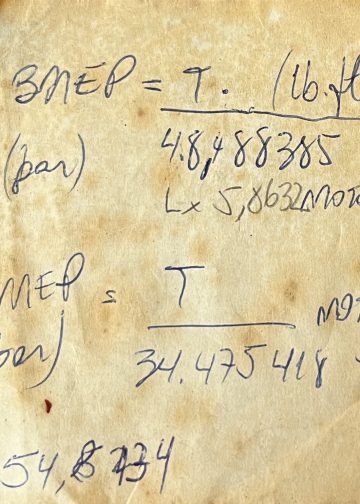 BMEP = T. (lb.ft
(bar) 48,488385
L x 5,8632 MOTO
MEP = T
bar) 34.475418 MOT
54,